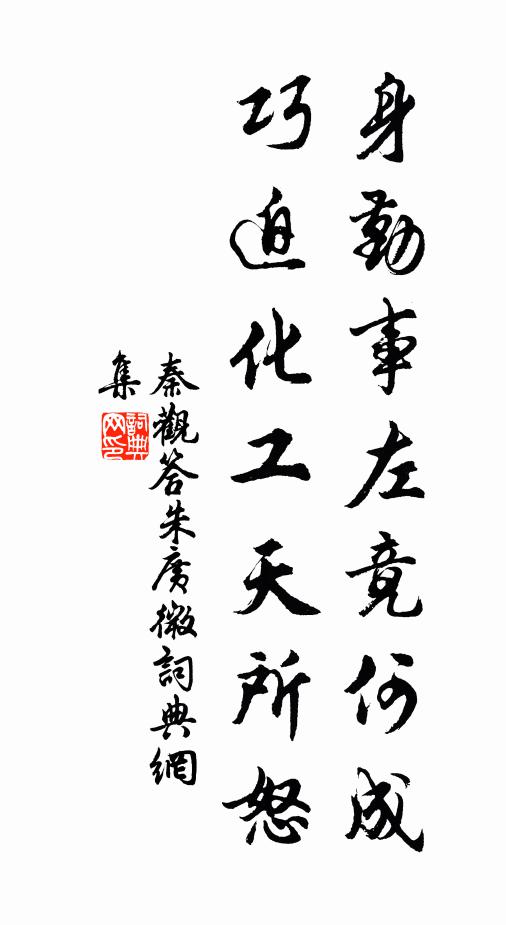 身勤事左竟何成
巧迫化工天所怒
秦觀答朱廣微詞典網
集
詞典
网印